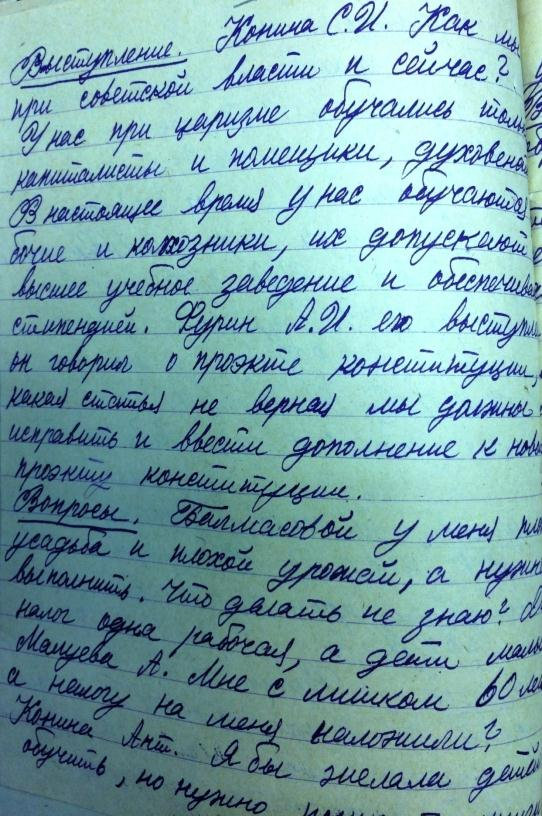 Выступление. Конина С.И. Как мы
при советской власти и сейчас?
У нас при царизме обучались
капиталисты и помещики,
В настоящее время у нас обучаются
бочие и колхозники, их допускают
высшее учебное заведение и
стипендией. Фурин А.И. его
он говорил о проэкте конституции,
какая статья не верная мы должны
исправить и ввести дополнение к
проэкту конституции.
Вопросы. Балмасовой у меня
усадьба и плохой урожай, а
выполнить. Что делать не знаю?
налог одна рабочая, а дети
Малуева А. Мне с лишком 60
а налогу на меня наложили?
Конина Ант. Я бы желала
обучить, но нужно